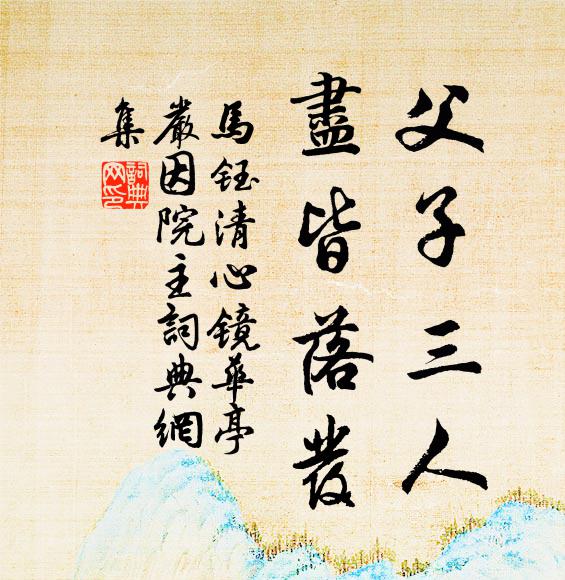 父子三人
盡皆落發
馬鈺清心镜華亭
嚴因院主詞典網
集
詞典
网印